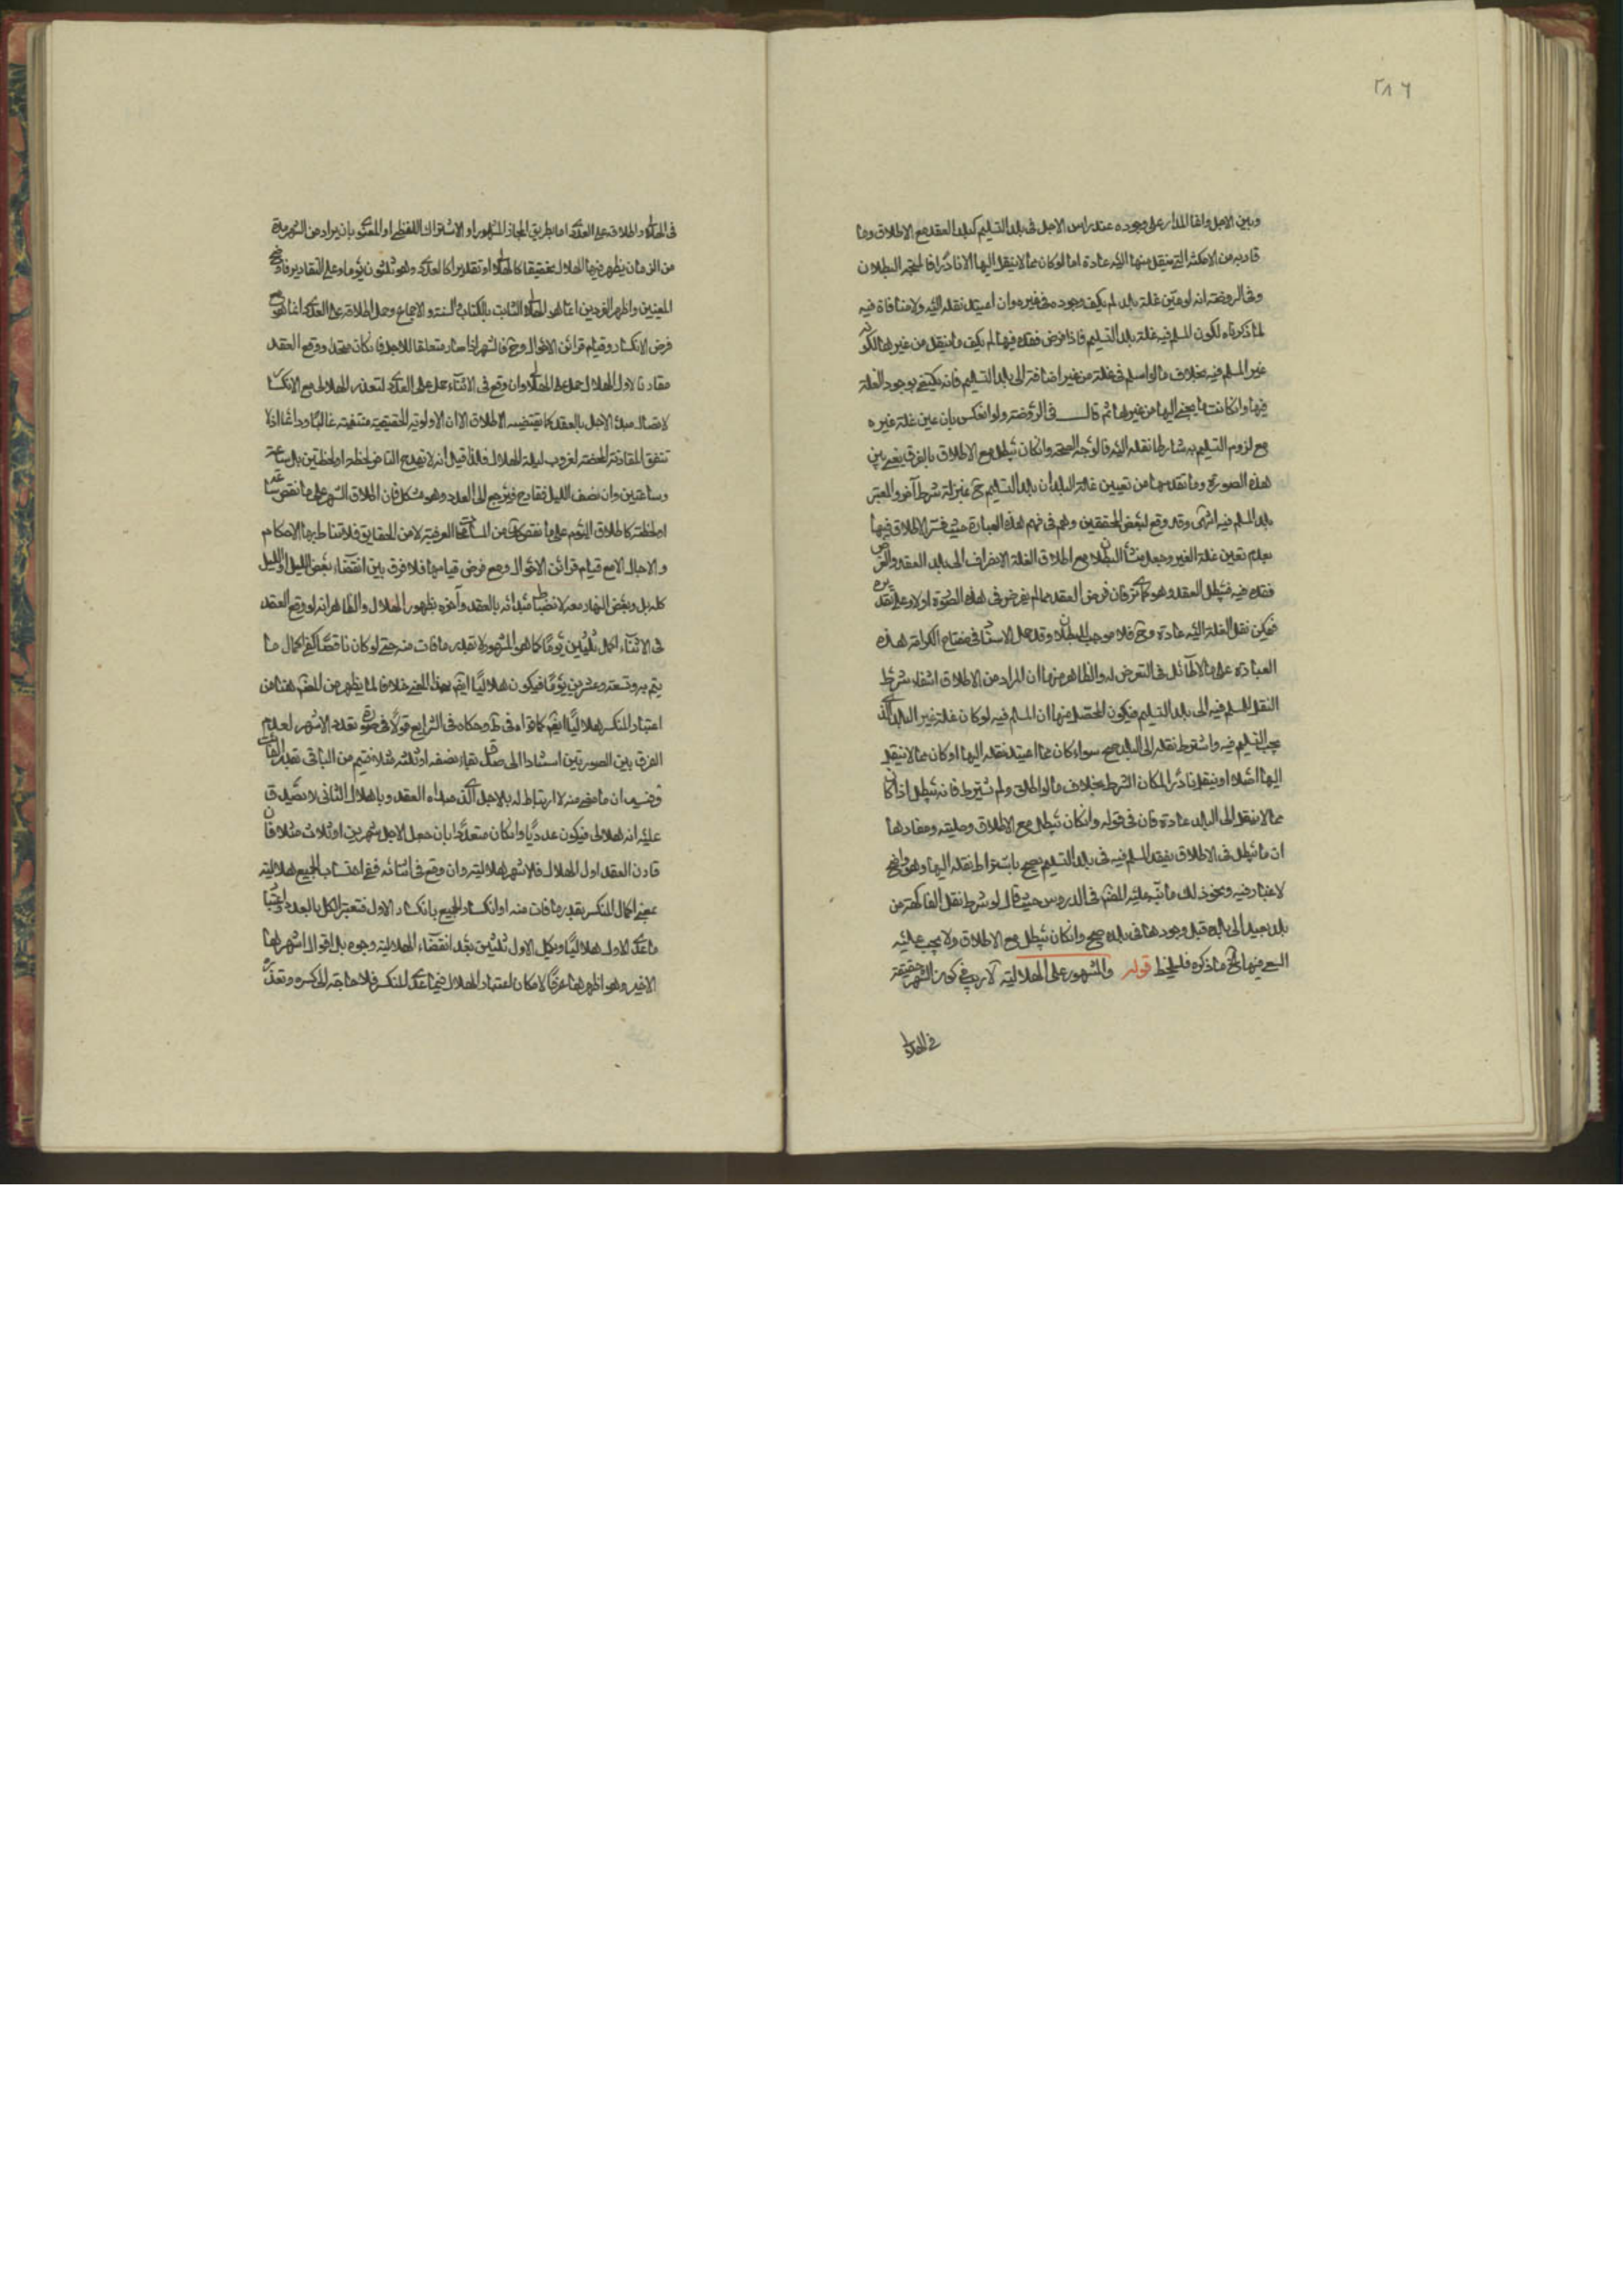 ٢٨٦
وبين الاجل وانما المدار على وجوده عند راس الاجل فى بلد التسليم كبلد العقد مع الاطلاق وما
قاربه من الامكنة التى ينقل منها اليه عادة اما لو كان مما لا ينقل اليها الا نادرا فالمتجه البطلان
وفى الروضة انه لو عين غلة بلد لم يكف وجوده فى غيره وان اعتيد نقله اليه ولا منافاة فيه
لما ذكرناه لكون المسلم فيه غلة بلد التسليم فاذا فرض فقده فيها لم يكف ما ينقل من غيرها لكونه
غير المسلم فيه بخلاف ما لو اسلم فى غلة من غير اضافة الى بلد التسليم فانه يكتفى بوجود الغلة
فيها وان كانت مما يجئ اليها من غيرها ثم قال فى الروضة ولو انعكس بان عين غلة غيره
مع لزوم التسليم به شارطا نقله اليه فالوجه الصحة وان كان يبطل مع الاطلاق بالفرق يعنى بين
هذه الصورة وما تقدمها من تعيين غلة البلد ان بلد التسليم ح بمنزلة شرط آخر والمعتبر
بلد المسلم فيه انتهى وقد وقع لبعض المحققين وهم فى فهم هذه العبارة حيث فسر الاطلاق فيها
بعدم تعين غلة الغير وجعل منشأ البطلان مع اطلاق الغلة الانصراف الى بلد العقد والفرض
فقده فيه فيبطل العقد وهو كما ترى فان فرض العقد مما لم يفرض فى هذه الصورة اولا وعلى تقديره
فيمكن نقل الغلة اليه عادة وح فلا موجب للبطلان وقد حمل الاستاد فى مفتاح الكرامة هذه
العبارة على ما لا طائل فى التعرض له والظاهر منها ان المراد من الاطلاق انتفاء شرط
النقل للمسلم فيه الى بلد التسليم فيكون المحصل منها ان المسلم فيه لو كان غلة غير البلد الذى
يجب التسليم فيه واشترط نقله الى البلد صح سواء كان مما اعتيد نقله اليها او كان مما لا ينقل
اليها اصلا او ينقل نادرا لمكان الشرط بخلاف ما لو اطلق ولم يشترط فانه يبطل اذا كان
مما لا ينقل الى البلد عادة فان فى قوله وان كان يبطل مع الاطلاق وصلية ومفادها
ان ما يبطل فى الاطلاق بفقد المسلم فيه فى بلد التسليم يصح باشتراط نقله اليها وهو واضح
لا غبار فيه ونحو ذلك ما نبه عليه المصنف فى الدروس حيث قال لو شرط نقل الفاكهة من
بلد بعيد الى بلده قبل وجودها فى بلده صح وان كان يبطل مع الاطلاق ولا يجب عليه
السعى فيها الخ ما ذكره فليلحظ قوله والمشهور على الهلالية لا ريب فى كون الشهر حقيقة
فى الهلالى
فى الهلالى واطلاقه على العددى اما بطريق المجاز المشهور او الاشتراك اللفظى او المعنوى بان يراد من الشهر مدة
من الزمان يظهر فيها الهلال تحقيقا كالهلالى او تقديرا كالعددى وهو ثلثون يوما وعلى التقادير فاوضح
المعنيين واظهر الفردين انما هو الهلالى الثابت بالكتاب والسنة والاجماع وحمل اطلاقه على العددى انما هو مع
فرض الانكسار وقيام قرائن الاحوال وح فالشهر اذا صار متعلقا للاجل فان كان متحدا ووقع العقد
مقارنا لاول الهلال حمل على الهلالى وان وقع فى الاثناء حمل على العددى لتعذر الهلالى مع الانكسار
لاتصال مبدأ الاجل بالعقد كما يقتضيه الاطلاق الا ان الاولوية الحقيقية منتفية غالبا ودائما اذا
تتفق المقارنة المحضة لغروب ليلة الهلال فلذا قيل انه لا يقدح التاخر لحظة او لحظتين بل ساعة
وساعتين وان نصف الليل فقادح فيرجع الى العدد وهو مشكل فان اطلاق الشهر على ما نقص ساعة
او لحظة كاطلاق اليوم على ما نقص كك من المسامحات العرفية لا من الحقايق فلا تناط بها الاحكام
والاجال الا مع قيام قرائن الاحوال ومع فرض قيامها فلا فرق بين انقضاء بعض الليل او الليل
كله بل وبعض النهار معه لانضباط مبدائه بالعقد وآخره بظهور الهلال والظاهر انه لو وقع العقد
فى الاثناء اكمل ثلثين يوما كما هو المشهور لا بقدر ما فات منه حتى لو كان ناقصا كفى اكمال ما
يتم به وتسعة وعشرين يوما فيكون هلاليا ايضا بهذا المعنى خلافا لما يظهر من المصنف هنا من
اعتبار المنكسر هلاليا ايضا كما قواه فى ط وحكاه فى الشرايع قولا فى صورة تعدد الاشهر لعدم
الفرق بين الصورتين استنادا الى صدق نهار نصفه او ثلثه مثلا فيتم من الباقى بقدر الفائت
وفيه ان ما مضى منه لا ارتباط له بالاجل الذى مبداه العقد وباهلال الثانى لا تصدق
عليه انه هلالى فيكون عدديا وان كان متعددا بان جعل الاجل شهرين او ثلاث مثلا فان
قارن العقد اول الهلال فالاشهر هلالية وان وقع فى اثنائه ففى احتساب الجميع هلالية
بمعنى اكمال المنكسر بقدر ما فات منه او انكسار الجميع بانكسار الاول فتعتبر الكل بالعدد او احتساب
ما عدا الاول هلاليا ويكمل الاول ثلثين بعد انقضاء الهلالية وجوه بل اقوال اشهرها
الاخير وهو اظهرها عرفا لامكان اعتبار الهلال فيما عدا المنكسر فلا حاجة الى كسره وتعذره